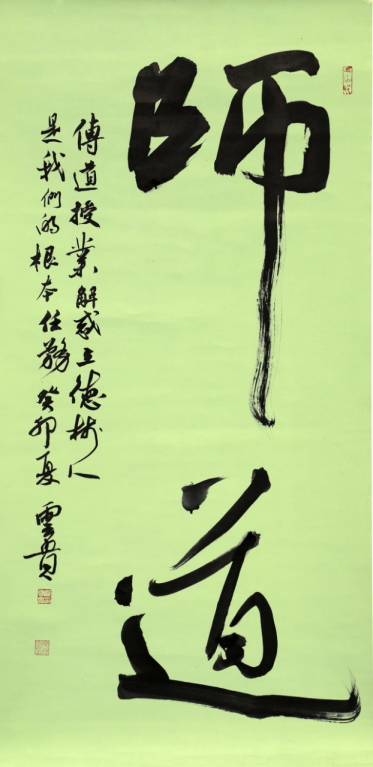 師道
傳道授業解惑立德樹人
是我們的根本任務癸卯夏雲貴